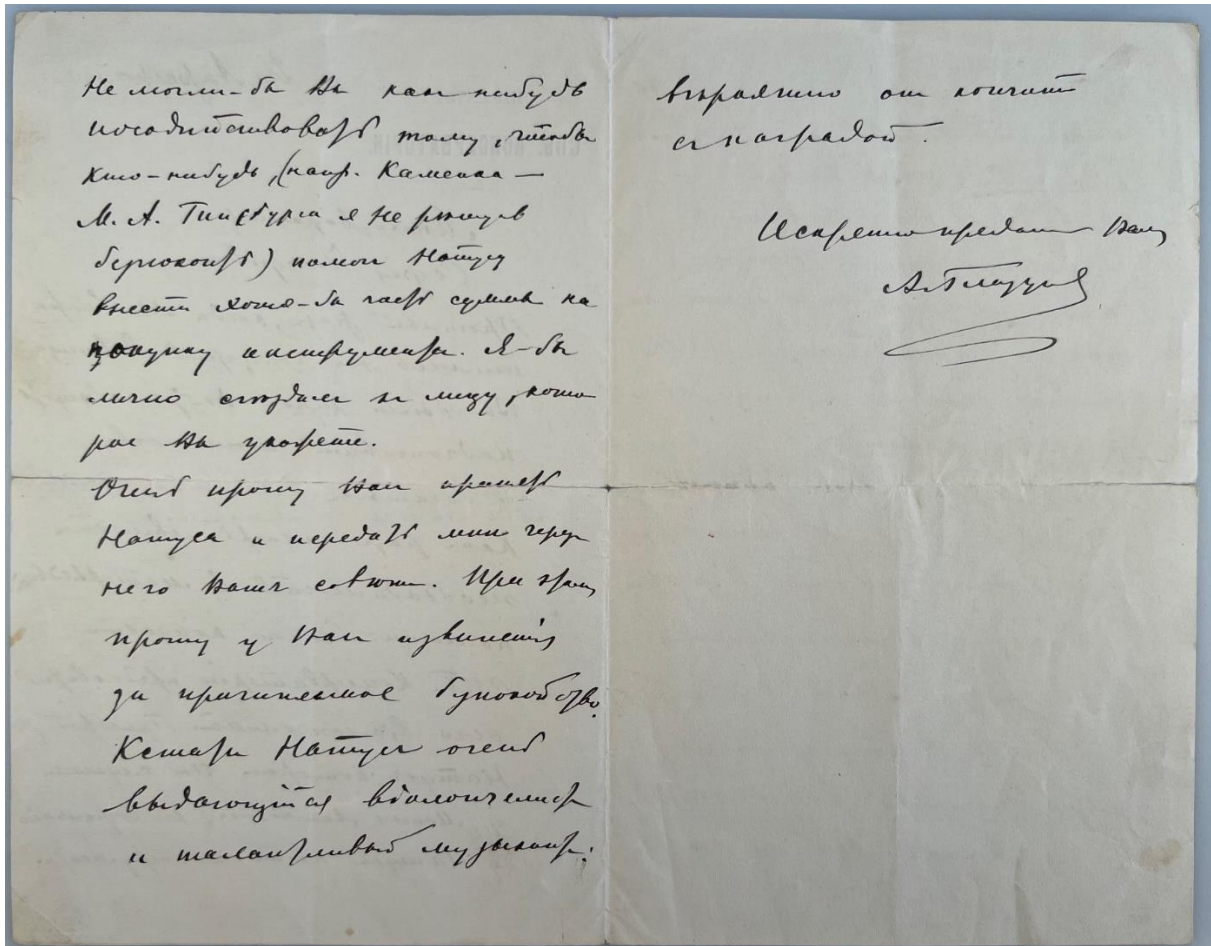 Не могли-бы Вы какъ нибудь
посодѣйствовать тому, чтобы
кто-нибудь, (напр. Каменка —
М. А. Гинсбурга я не рѣшусь
безпокоить) помогъ Натусу
внести хотя-бы часть суммы на
покупку инструмента. Я-бы
лично съѣздилъ къ лицу, кото
рое Вы укажете.
Очень прошу Васъ принять
Натуса и передать мнѣ черезъ
него Вашъ совѣтъ. При этомъ
прошу у Васъ извиненія
за причиняемое безпокойство.
Кстати Натусъ очень
выдающійся віолончелистъ
и талантливый музыкантъ;
вѣроятно онъ кончитъ
съ наградой.
Искренно преданный Вамъ
А. Глазуновъ